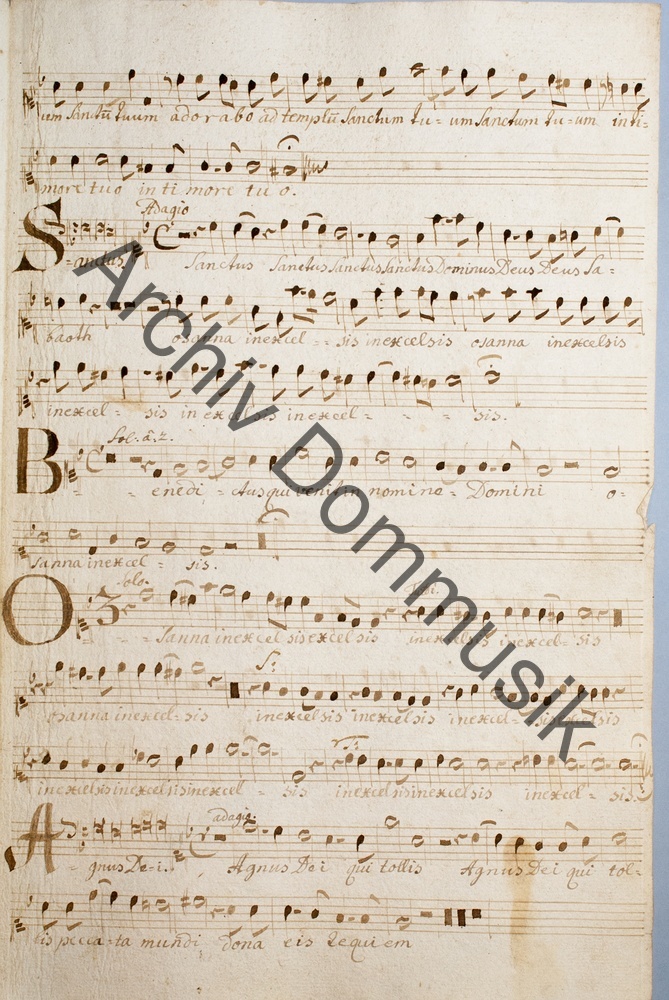 um Sanctū tuum adorabo ad templū Sanctum tu= um Sanctum tu=um in ti=
more tuo in ti more tu o.
Adagio
Sanctus Sanctus Sanctus Sanctus Sanctus Dominus Deus Deus Sa=
baoth osanna inexcel = = sis inexcelsis osanna inexcelsis
inexcel = sis in excelsis inexcel = = = sis.
Benedi = ctus qui venit in nomine = Domini o=
sanna inexcel = sis.
Solo.
O = = = Sanna inexcel sis excel sis inexcelsis inexcel= sis
osanna inexcel= sis inexcelsis inexcelsis inexcel= sis excelsis
inexcelsis inexcelsis inexcel = sis inexcelsis inexcelsis inexcel = sis.
adagio.
Agnus De=i. Agnus Dei qui tollis Agnus Dei qui tol=
lis pecca=ta mundi dona eis requiem
Archiv Dommusik